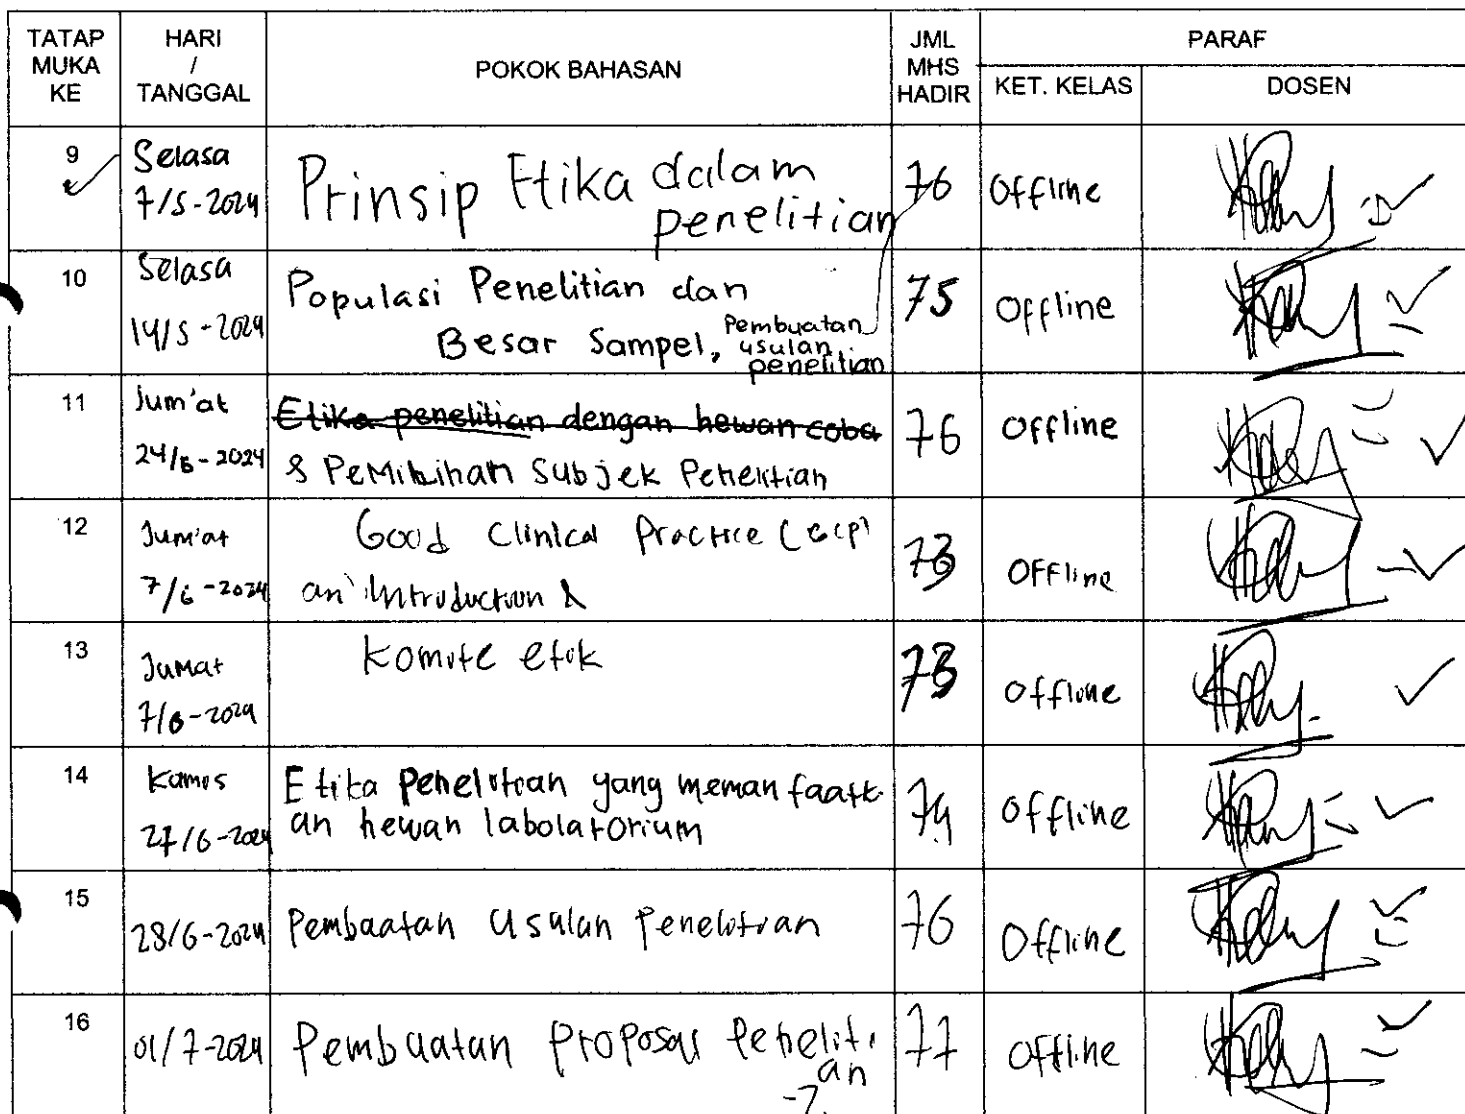 TATAP MUKA KE HARI / TANGGAL POKOK BAHASAN JML MHS HADIR PARAF
KET. KELAS DOSEN
9 Selasa 7/5-2024 Prinsip Etika dalam penelitian 76 Offline
10 Selasa 14/5-2024 Populasi Penelitian dan Besar Sampel, Pembuatan usulan penelitian 75 Offline
11 Jum'at 24/5-2024 Etika penelitian dengan hewan coba & Pemilihan Subjek Penelitian 76 Offline
12 Jum'at 7/6-2024 Good Clinical Practice (GCP) an introduction & Offline
13 Jumat 7/6-2024 Komite etik Offline
14 Kamis 27/6-2024 Etika Penelitian yang memanfaatkan hewan labolatorium 74 Offline
15 28/6-2024 Pembuatan Usulan Penelitian 76 Offline
16 01/7-2024 Pembuatan Proposal Penelitian 77 Offline